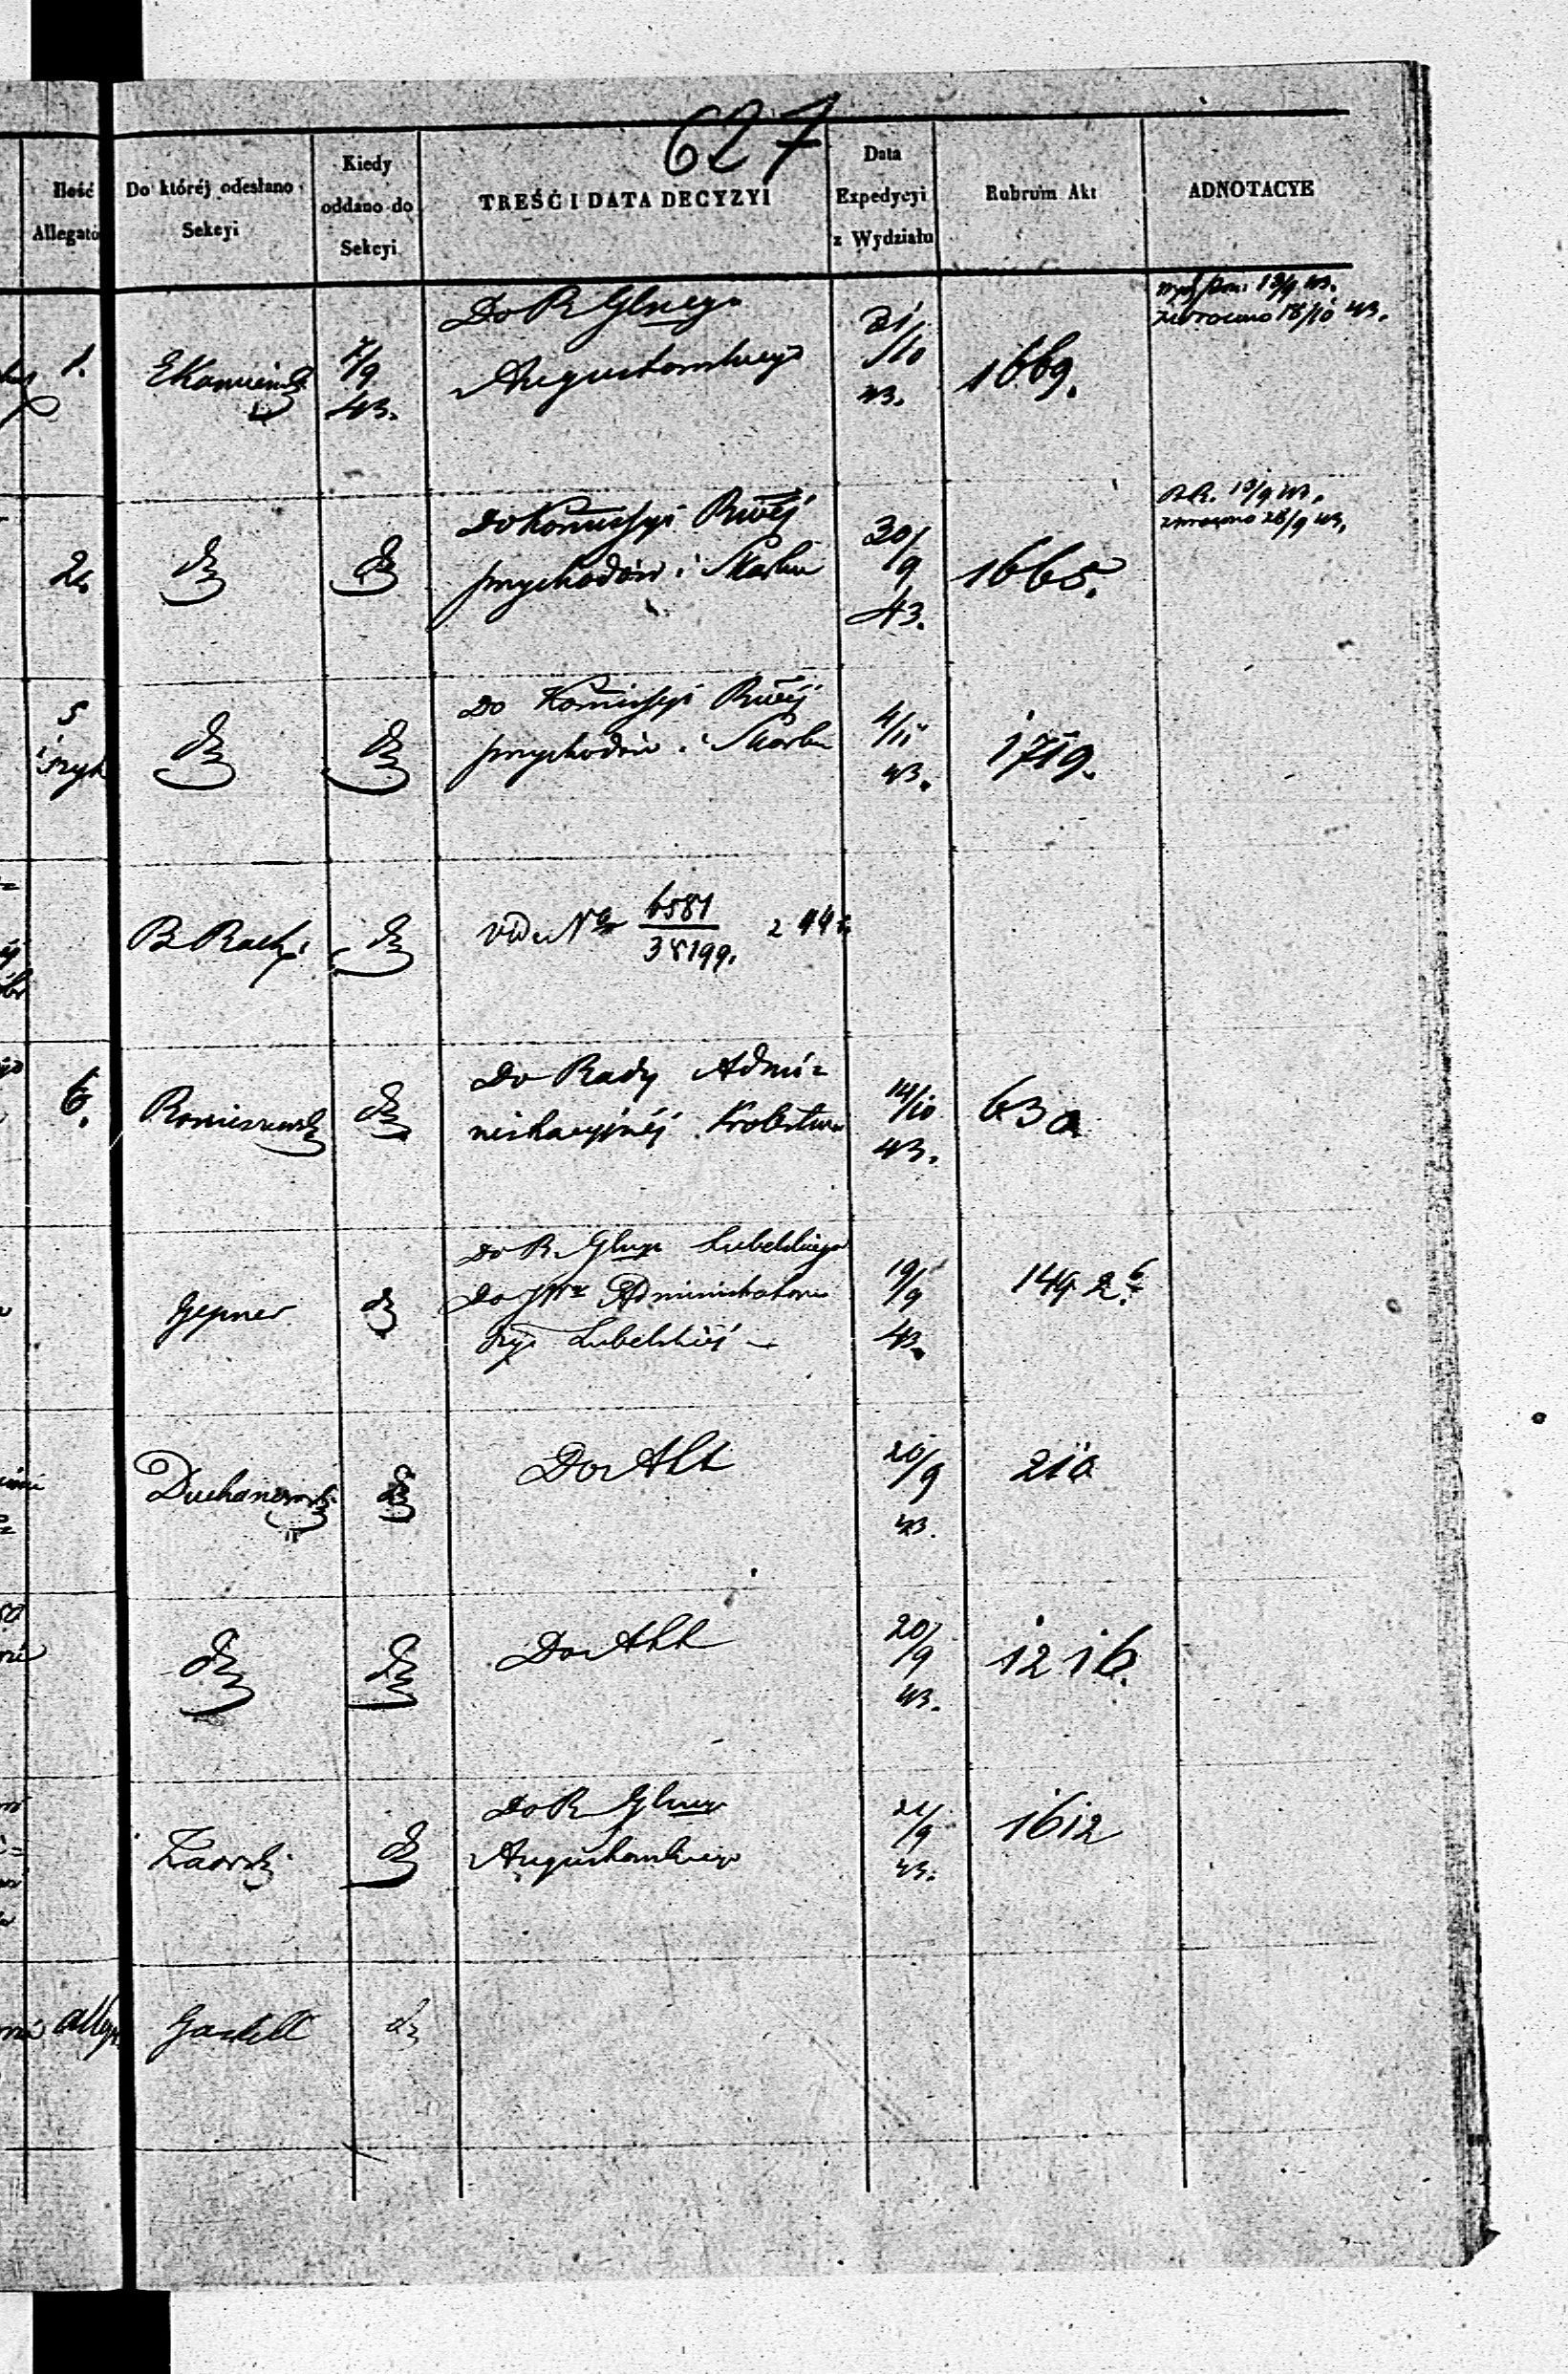 627
Ilość
Allegató
Do któréj odesłano
Sekcyi
Kiedy
oddano do
Sekcyi
TREŚĆ I DATA DECYZYI
Data
Expedycyi
z Wydziału
Rubrum Akt
ADNOTACYE
1.
EKamieńsk
7/9
43.
Do R Glnego
Augustowskiego
31/10
43.
1669.
zwrocono 18/10 43.
2
do
do
Do Komissyi Rwéj
przychodów i Skarbu
30/9
43.
1665.
R.R. 13/9 43.
zwrocono 28/9 43.
5
do
do
Do Komissyi Rwéj
przychodów i Skarbu
4/11
43.
1719.
B Rach.
do
vide Nr 6581/38199. z 44 r.
6.
Romiszewsk
do
Do Rady Admi=
nistracyjnéj Królestwa
14/10
43.
63 a
Gepner
do
Do R. Glnego Lubelskiego
Do JWo Administratora
Dyi Lubelskiéj
19/9
43.
149
Duchanowski
do
Do Akt
20/9
43.
21a
do
do
Do Akt
20/9
43.
1216.
Zawski
do
Do R Glnego
Augustowskiego
21/9
43.
1612
alleg
do